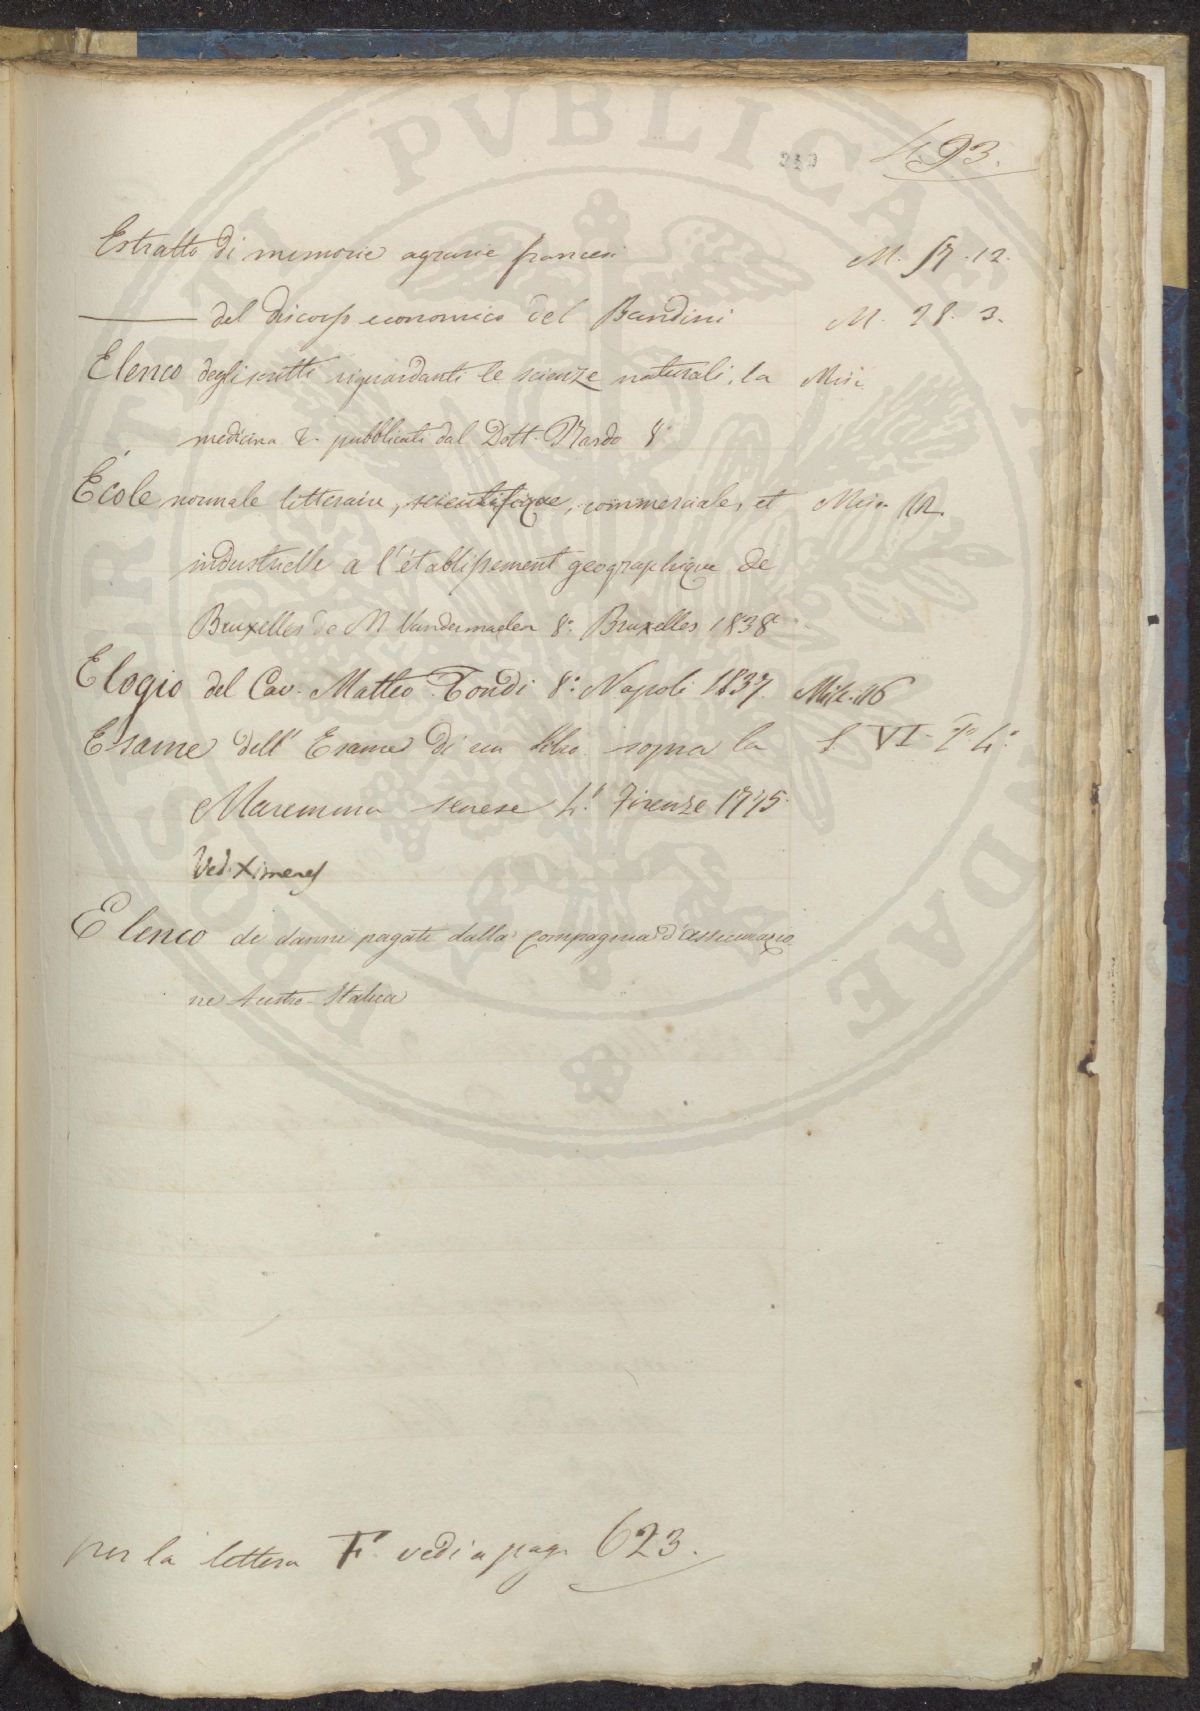 493.
Estratto di memorie agrarie francesi M. 17. 12.
del discorso economico del Bandini M. 28. 3.
Elenco degli scritti riguardanti le scienze naturali, la Misc.
medicina &. pubblicati dal Dott. Nardo 8°
École normale litteraire, scientifique, commerciale, et Misc.
industrielle a l'établissement geographique de
Bruxelles de M Vandermaelen 8° Bruxelles 1838
Elogio del Cav. Matteo Tondi 8° Napoli 1837. Misc. 116
Esame dell' Esame di un libro sopra la S. VI. 4°
Maremma senese 4° Firenze 1775.
Ved. Ximenes
Elenco de danni pagati dalla compagnia d'assicurazio
ne Austro-Italica
per la lettera F. vedi a pag. 623.
PROSPERITATI PVBLICAE AVGENDAE